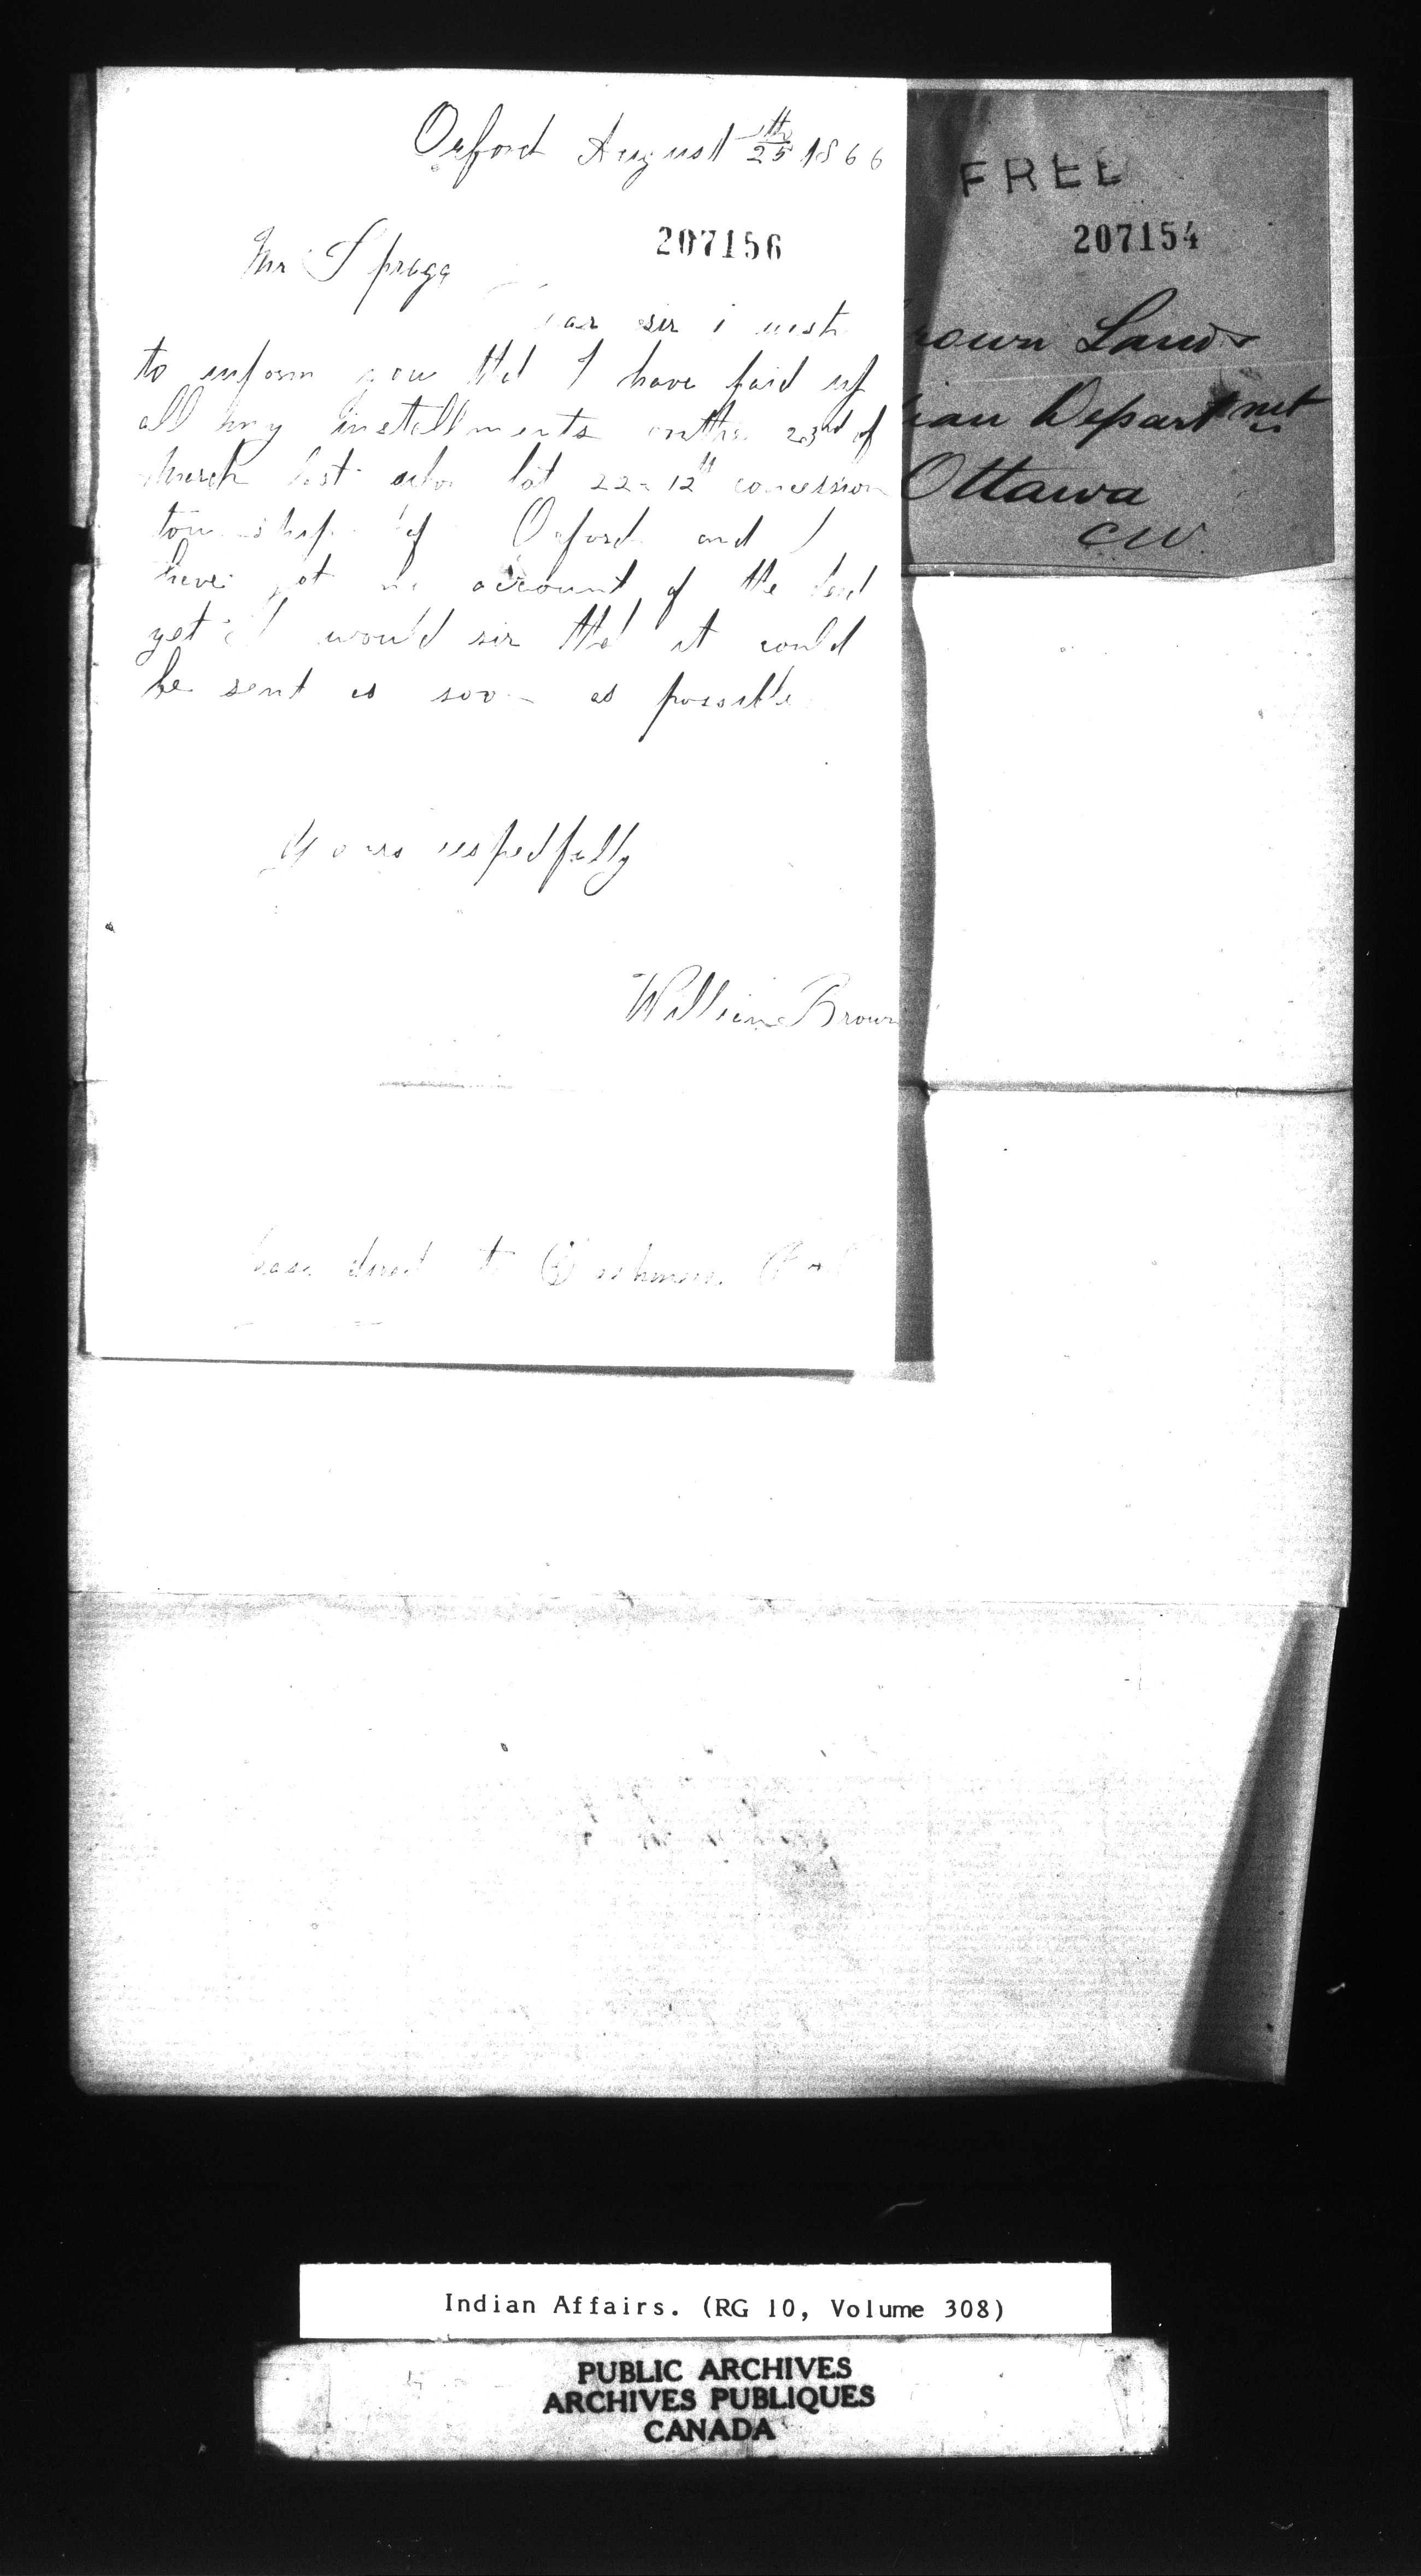 Orford August 25th 1866
207156
Mr Spragg
sir i wish
to inform you that I have paid up
all my installments on the 23rd of
March last lot 22 - 12th concession
township of Orford and I
have got no account of the deed
yet I would sir that it could
be sent as soon as possible
Yours respectfully
William Brown
direct to
FREE
207154
rown Lands
ian Departmet
Ottawa
CW
Indian Affairs. (RG 10, Volume 308)
PUBLIC ARCHIVES
ARCHIVES PUBLIQUES
CANADA